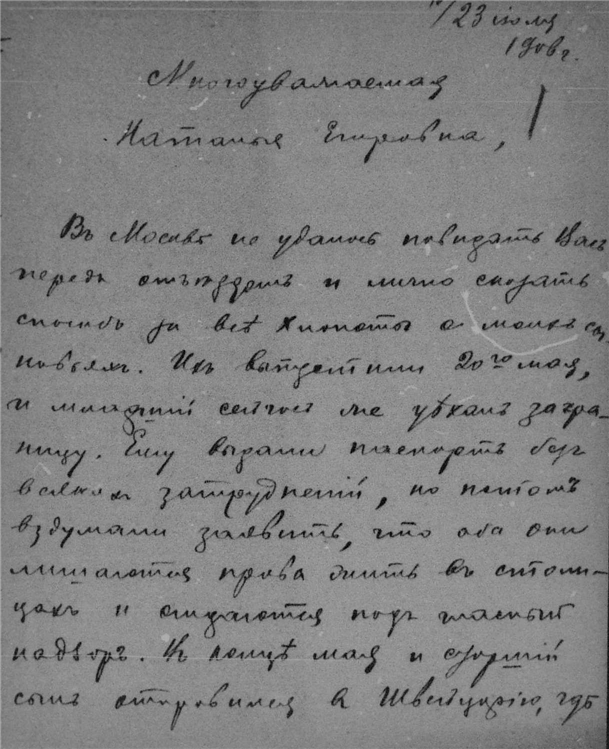 10/23 іюля
190 г.
Многоуважаемая
Наталья Егоровна,
Въ Москвѣ не удалось повидать Васъ
передъ отъѣздомъ и лично сказать
спасибо за всѣ хлопоты о моихъ сы-
новьяхъ. Ихъ выпустили 20го мая,
и младшій сейчасъ же уѣхалъ загра-
ницу. Ему выдали паспортъ безъ
всякихъ затрудненій, но потомъ
вздумали заявить, что оба они
лишаются права жить въ столи-
цахъ и отдаются подъ гласный
надзоръ. Въ концѣ мая и старшій
сынъ отправился въ Швейцарію, гдѣ